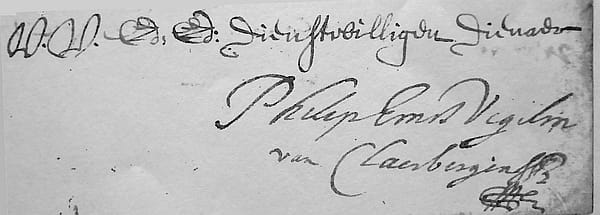 W. W. Ed. Ed: dienstwilligen dienaer
Philip Ernst Vegilin
van Claerbergen